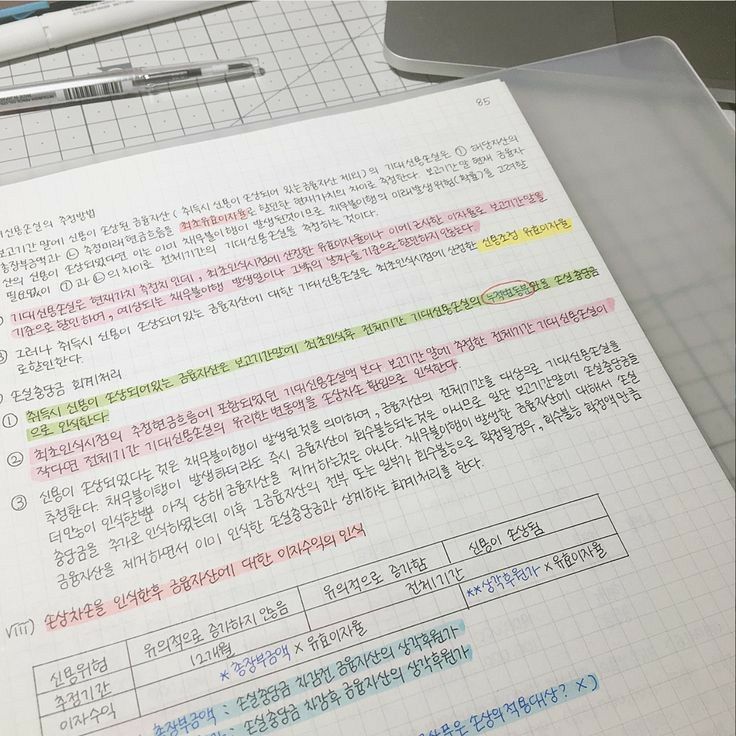 85
신용손실의 추정방법
보고기간말에 신용이 손상된 금융자산 (취득시 신용이 손상되어 있는 금융자산 제외)의 기대신용손실은 ① 해당자산의
총장부금액과 ⓛ 추정미래현금흐름을 최초유효이자율로 할인한 현재가치의 차이로 추정한다. 보고기간말 현재 금융자
산의 신용이 손상되었다면 이는 이미 채무불이행이 발생된것이므로 채무불이행의 미래발생위험(확률)을 고려할
필요없이 ① 과 ⓛ의 차이로 전체기간의 기대신용손실을 추정하는 것이다.
기대신용손실은 현재가치 측정치 인데, 최초인식시점에 산정한 유효이자율이나 이에 근사한 이자율로 보고기간말을
기준으로 할인하며, 예상되는 채무불이행 발생일이나 그밖의 날짜를 기준으로 할인하지 않는다.
③ 그러나 취득시 신용이 손상되어있는 금융자산에 대한 기대신용손실은 최초인식시점에 산정한 신용조정 유효이자율
로 할인한다.
손실충당금 회계처리
① 취득시 신용이 손상되어있는 금융자산은 보고기간말에 최초인식후 전체기간 기대신용손실의 누적변동분만을 손실충당금
으로 인식한다.
② 최초인식시점의 추정현금흐름에 포함되었던 기대신용손실액 보다 보고기간 말에 추정한 전체기간 기대신용손실이
작다면 전체기간 기대신용손실의 유리한 변동액을 손상차손 환입으로 인식한다.
③ 신용이 손상되었다는 것은 채무불이행이 발생된것을 의미하며, 금융자산의 전체기간을 대상으로 기대신용손실을
추정한다. 채무불이행이 발생하더라도 즉시 금융자산이 회수불능되는것은 아니므로 일단 보고기간말에 손실충당금을
더많이 인식할뿐 아직 당해 금융자산을 제거하는것은 아니다. 채무불이행이 발생한 금융자산에 대해서 손실
충당금을 추가로 인식하였는데 이후 그금융자산의 전부 또는 일부가 회수불능으로 확정될경우, 회수불능 확정액 만큼
금융자산을 제거하면서 이미 인식한 손실충당금과 상계하는 회계처리를 한다.
viii) 손상차손을 인식한후 금융자산에 대한 이자수익의 인식
신용위험 유의적으로 증가하지 않음 유의적으로 증가함 신용이 손상됨
추정기간 12개월 전체기간
이자수익 *총장부금액 × 유효이자율 **상각후원가 × 유효이자율
총장부금액 : 손실충당금 차감전 금융자산의 상각후원가
: 손실충당금 차감후 금융자산의 상각후원가
손상의 적용대상? ×)